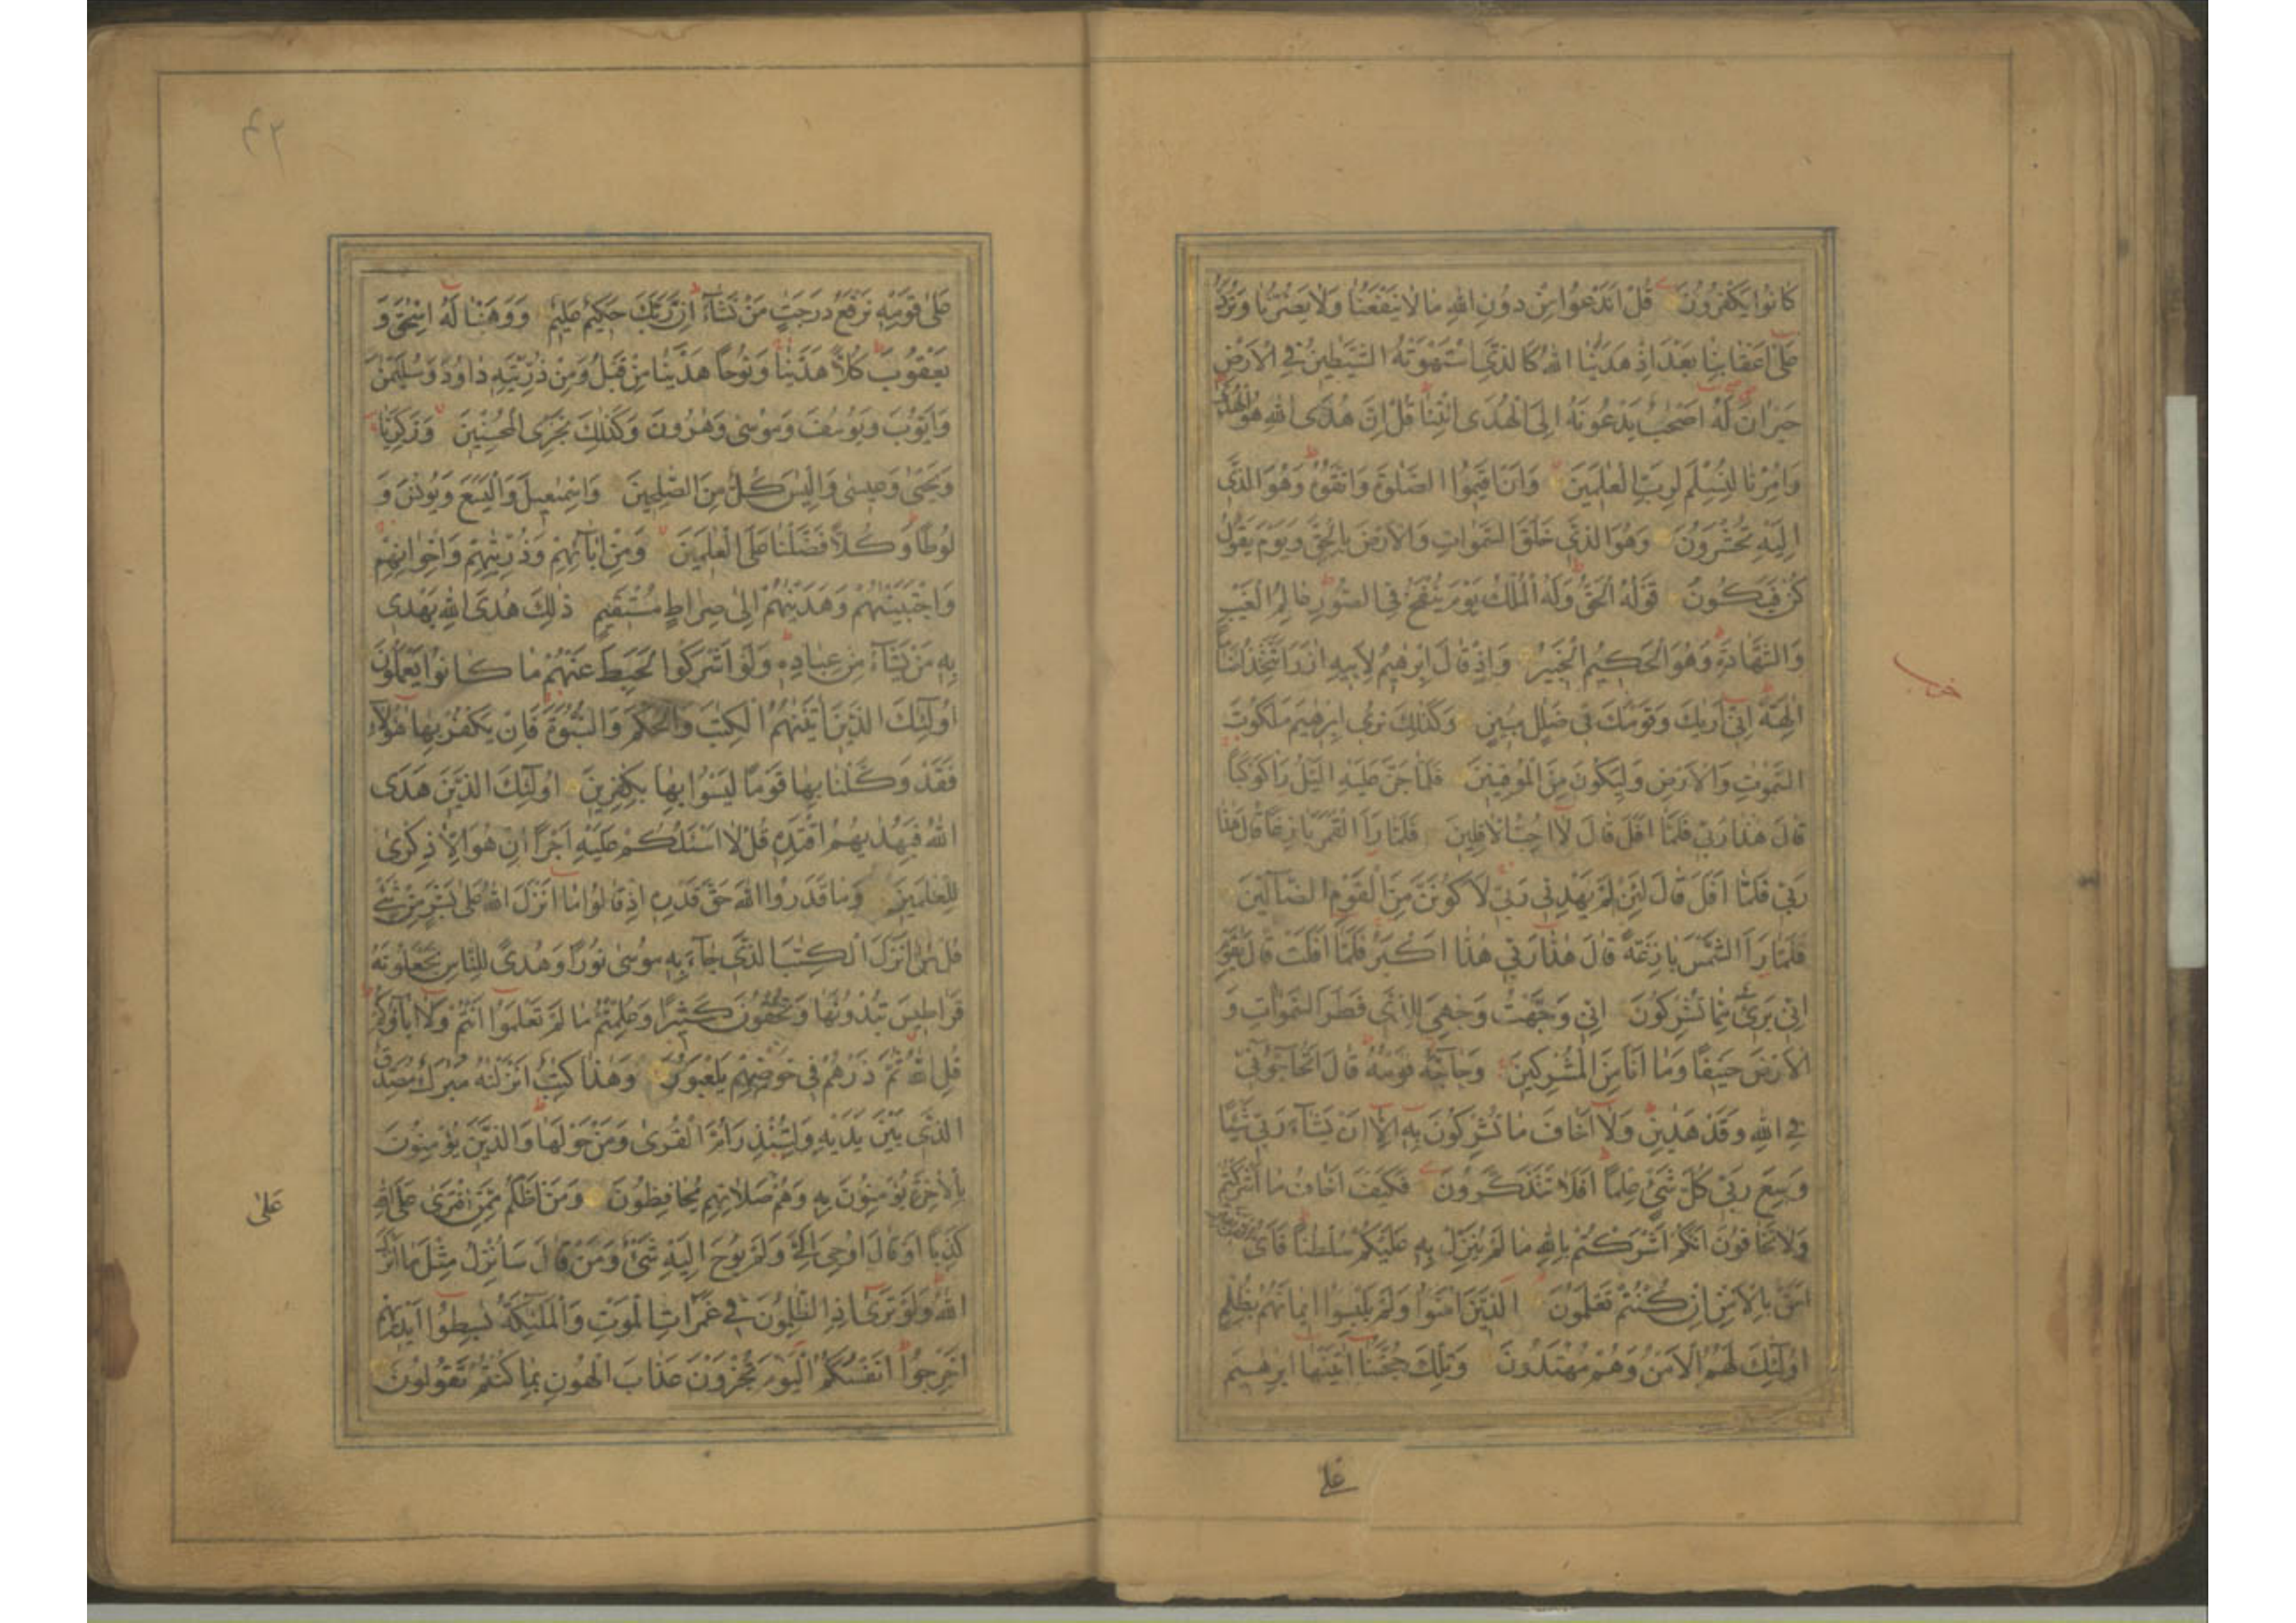 كَانُوا يَكْفُرُونَ قُلْ اَنَدْعُوا مِنْ دُونِ اللهِ مَا لَا يَنْفَعُنَا وَلَا يَضُرُّنَا وَنُرَدُّ
عَلٰى اَعْقَابِنَا بَعْدَ اِذْ هَدٰينَا اللهُ كَالَّذِى اسْتَهْوَتْهُ الشَّيٰطِينُ فِى الْاَرْضِ
حَيْرَانَ لَهُ اَصْحٰبٌ يَدْعُونَهُ اِلَى الْهُدَى ائْتِنَا قُلْ اِنَّ هُدَى اللهِ هُوَ الْهُدٰى
وَاُمِرْنَا لِنُسْلِمَ لِرَبِّ الْعٰلَمِينَ وَاَنْ اَقِيمُوا الصَّلٰوةَ وَاتَّقُوهُ وَهُوَ الَّذِى
اِلَيْهِ تُحْشَرُونَ وَهُوَ الَّذِى خَلَقَ السَّمٰوَاتِ وَالْاَرْضَ بِالْحَقِّ وَيَوْمَ يَقُولُ
كُنْ فَيَكُونُ قَوْلُهُ الْحَقُّ وَلَهُ الْمُلْكُ يَوْمَ يُنْفَخُ فِى الصُّورِ عَالِمُ الْغَيْبِ
وَالشَّهَادَةِ وَهُوَ الْحَكِيمُ الْخَبِيرُ وَاِذْ قَالَ اِبْرٰهِيمُ لِاَبِيهِ اٰزَرَ اَتَتَّخِذُ اَصْنَامًا
اٰلِهَةً اِنِّى اَرٰيكَ وَقَوْمَكَ فِى ضَلٰلٍ مُبِينٍ وَكَذٰلِكَ نُرِى اِبْرٰهِيمَ مَلَكُوتَ
السَّمٰوٰتِ وَالْاَرْضِ وَلِيَكُونَ مِنَ الْمُوقِنِينَ فَلَمَّا جَنَّ عَلَيْهِ الَّيْلُ رَاٰ كَوْكَبًا
قَالَ هٰذَا رَبِّى فَلَمَّا اَفَلَ قَالَ لَا اُحِبُّ الْاٰفِلِينَ فَلَمَّا رَاَ الْقَمَرَ بَازِغًا قَالَ هٰذَا
رَبِّى فَلَمَّا اَفَلَ قَالَ لَئِنْ لَمْ يَهْدِنِى رَبِّى لَاَكُونَنَّ مِنَ الْقَوْمِ الضَّالِّينَ
فَلَمَّا رَاَ الشَّمْسَ بَازِغَةً قَالَ هٰذَا رَبِّى هٰذَا اَكْبَرُ فَلَمَّا اَفَلَتْ قَالَ يٰقَوْمِ
اِنِّى بَرِىءٌ مِمَّا تُشْرِكُونَ اِنِّى وَجَّهْتُ وَجْهِىَ لِلَّذِى فَطَرَ السَّمٰوَاتِ وَ
الْاَرْضَ حَنِيفًا وَمَا اَنَا مِنَ الْمُشْرِكِينَ وَحَاجَّهُ قَوْمُهُ قَالَ اَتُحَاجُّونِّى
فِى اللهِ وَقَدْ هَدٰينِ وَلَا اَخَافُ مَا تُشْرِكُونَ بِهِ اِلَّا اَنْ يَشَاءَ رَبِّى شَيْئًا
وَسِعَ رَبِّى كُلَّ شَىْءٍ عِلْمًا اَفَلَا تَتَذَكَّرُونَ فَكَيْفَ اَخَافُ مَا اَشْرَكْتُمْ
وَلَا تَخَافُونَ اَنَّكُمْ اَشْرَكْتُمْ بِاللهِ مَا لَمْ يُنَزِّلْ بِهِ عَلَيْكُمْ سُلْطٰنًا فَاَىُّ الْفَرِيقَيْنِ
اَحَقُّ بِالْاَمْنِ اِنْ كُنْتُمْ تَعْلَمُونَ الَّذِينَ اٰمَنُوا وَلَمْ يَلْبِسُوا اِيمَانَهُمْ بِظُلْمٍ
اُولٰئِكَ لَهُمُ الْاَمْنُ وَهُمْ مُهْتَدُونَ وَتِلْكَ حُجَّتُنَا اٰتَيْنٰهَا اِبْرٰهِيمَ
على
عَلٰى قَوْمِهِ نَرْفَعُ دَرَجٰتٍ مَنْ نَشَاءُ اِنَّ رَبَّكَ حَكِيمٌ عَلِيمٌ وَوَهَبْنَا لَهُ اِسْحٰقَ وَ
يَعْقُوبَ كُلًّا هَدَيْنَا وَنُوحًا هَدَيْنَا مِنْ قَبْلُ وَمِنْ ذُرِّيَّتِهِ دَاوُدَ وَسُلَيْمٰنَ
وَاَيُّوبَ وَيُوسُفَ وَمُوسٰى وَهٰرُونَ وَكَذٰلِكَ نَجْزِى الْمُحْسِنِينَ وَزَكَرِيَّا
وَيَحْيٰى وَعِيسٰى وَاِلْيَاسَ كُلٌّ مِنَ الصّٰلِحِينَ وَاِسْمٰعِيلَ وَالْيَسَعَ وَيُونُسَ وَ
لُوطًا وَكُلًّا فَضَّلْنَا عَلَى الْعٰلَمِينَ وَمِنْ اٰبَائِهِمْ وَذُرِّيّٰتِهِمْ وَاِخْوَانِهِمْ
وَاجْتَبَيْنٰهُمْ وَهَدَيْنٰهُمْ اِلٰى صِرَاطٍ مُسْتَقِيمٍ ذٰلِكَ هُدَى اللهِ يَهْدِى
بِهِ مَنْ يَشَاءُ مِنْ عِبَادِهِ وَلَوْ اَشْرَكُوا لَحَبِطَ عَنْهُمْ مَا كَانُوا يَعْمَلُونَ
اُولٰئِكَ الَّذِينَ اٰتَيْنٰهُمُ الْكِتٰبَ وَالْحُكْمَ وَالنُّبُوَّةَ فَاِنْ يَكْفُرْ بِهَا هٰؤُلَاءِ
فَقَدْ وَكَّلْنَا بِهَا قَوْمًا لَيْسُوا بِهَا بِكٰفِرِينَ اُولٰئِكَ الَّذِينَ هَدَى
اللهُ فَبِهُدٰيهُمُ اقْتَدِهِ قُلْ لَا اَسْئَلُكُمْ عَلَيْهِ اَجْرًا اِنْ هُوَ اِلَّا ذِكْرٰى
لِلْعٰلَمِينَ وَمَا قَدَرُوا اللهَ حَقَّ قَدْرِهِ اِذْ قَالُوا مَا اَنْزَلَ اللهُ عَلٰى بَشَرٍ مِنْ شَىْءٍ
قُلْ مَنْ اَنْزَلَ الْكِتٰبَ الَّذِى جَاءَ بِهِ مُوسٰى نُورًا وَهُدًى لِلنَّاسِ تَجْعَلُونَهُ
قَرَاطِيسَ تُبْدُونَهَا وَتُخْفُونَ كَثِيرًا وَعُلِّمْتُمْ مَا لَمْ تَعْلَمُوا اَنْتُمْ وَلَا اٰبَاؤُكُمْ
قُلِ اللهُ ثُمَّ ذَرْهُمْ فِى خَوْضِهِمْ يَلْعَبُونَ وَهٰذَا كِتٰبٌ اَنْزَلْنٰهُ مُبٰرَكٌ مُصَدِّقُ
الَّذِى بَيْنَ يَدَيْهِ وَلِتُنْذِرَ اُمَّ الْقُرٰى وَمَنْ حَوْلَهَا وَالَّذِينَ يُؤْمِنُونَ
بِالْاٰخِرَةِ يُؤْمِنُونَ بِهِ وَهُمْ عَلٰى صَلَاتِهِمْ يُحَافِظُونَ وَمَنْ اَظْلَمُ مِمَّنِ افْتَرٰى عَلَى اللهِ
عَلٰى
كَذِبًا اَوْ قَالَ اُوحِىَ اِلَىَّ وَلَمْ يُوحَ اِلَيْهِ شَىْءٌ وَمَنْ قَالَ سَاُنْزِلُ مِثْلَ مَا اَنْزَلَ
اللهُ وَلَوْ تَرٰى اِذِ الظّٰلِمُونَ فِى غَمَرَاتِ الْمَوْتِ وَالْمَلٰئِكَةُ بَاسِطُوا اَيْدِيهِمْ
اَخْرِجُوا اَنْفُسَكُمُ الْيَوْمَ تُجْزَوْنَ عَذَابَ الْهُونِ بِمَا كُنْتُمْ تَقُولُونَ